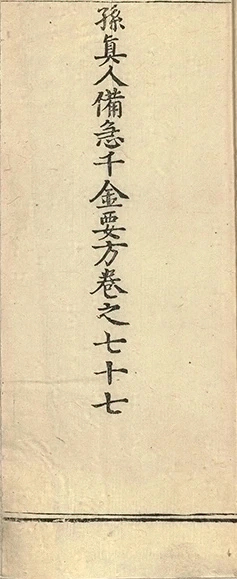 孫真人備急千金要方卷之七十七